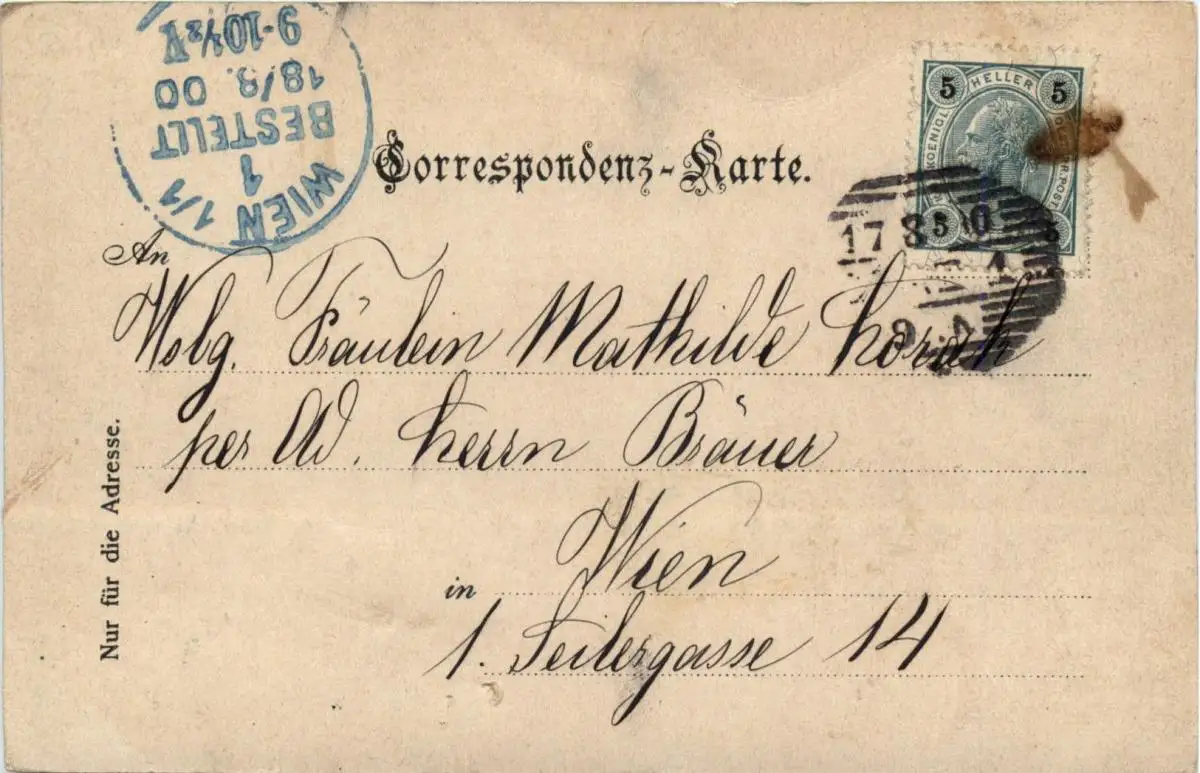 WIEN 1/1
1
BESTELLT
18/8. 00
9-10½V
5 HELLER 5
5 5
17 8 0
Correspondenz-Karte.
An
Wolg. Fräulein Mathilde
per Ad. Herrn Bräuer
in Wien
1. Seilergasse 14
Nur für die Adresse.